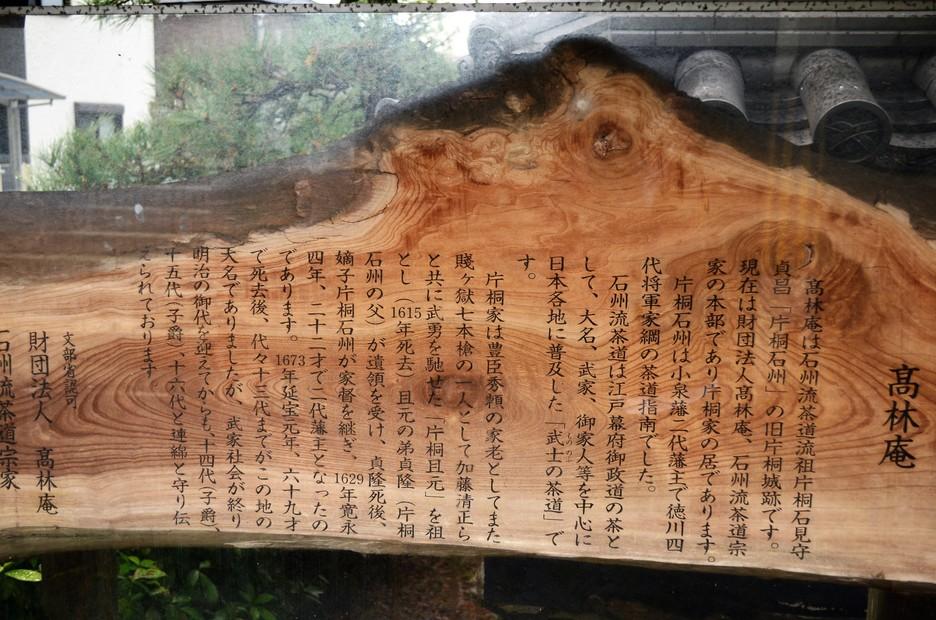 髙林庵
髙林庵は石州流茶道流祖片桐石見守
貞昌「片桐石州」の旧片桐城跡です。
現在は財団法人髙林庵、石州流茶道宗
家の本部であり片桐家の居であります。
片桐石州は小泉藩二代藩主で徳川四
代将軍家綱の茶道指南でした。
石州流茶道は江戸幕府御政道の茶と
して、大名、武家、御家人等を中心に
日本各地に普及した「武士の茶道」で
す。
片桐家は豊臣秀頼の家老としてまた
賤ヶ獄七本槍の一人として加藤清正ら
と共に武勇を馳せた「片桐且元」を祖
とし（1615年死去）且元の弟貞隆（片桐
石州の父）が遺領を受け、貞隆死後、
嫡子片桐石州が家督を継ぎ、1629年寛永
四年、二十二才で二代藩主となったの
であります。1673年延宝元年、六十九才
で死去後、代々十三代までがこの地の
大名でありましたが、武家社会が終り
明治の御代を迎えてからも、十四代（子爵）、
十五代（子爵）、十六代と連綿と守り伝
えられております
文部省認可
財団法人 髙林庵
石州流茶道宗家